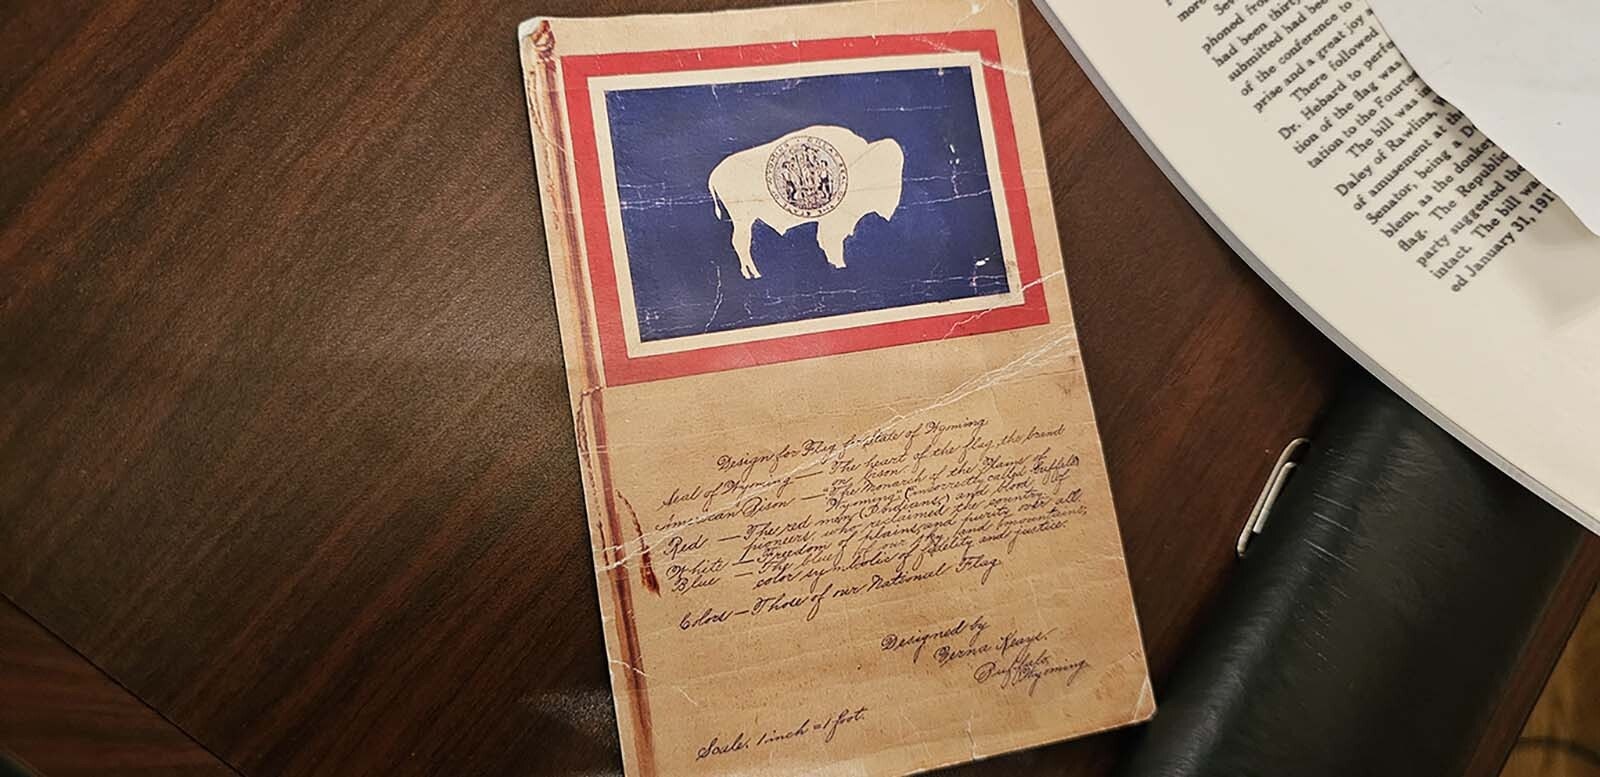 Design for Flag for State of Wyoming
Seal of Wyoming — The heart of the flag, the brand
on bison.
American Bison — "The Monarch of the Plains of
Wyoming" (incorrectly called Buffalo)
Red — The red men (Indians) and blood of
pioneers who reclaimed the country
White — Freedom of plains, and purity over all
Blue — The blue of our sky and mountains,
color symbolic of fidelity and justice.
Colors — Those of our National Flag
Designed by
Verna Keays.
Buffalo,
Wyoming
Scale, 1 inch = 1 foot.
more
phoned fro
had been thirty
submitted had bee
of the conference to
prise and a great joy
There followed
Dr. Hebard to perfe
tion of the flag was
tation to the Fourte
The bill was
Daley of Rawlins, W
of amusement at th
Senator, being a D
blem, as the donkey
flag. The Republic
party suggested the
intact. The bill wa
ed January 31, 191
GREAT SEAL OF THE STATE OF WYOMING